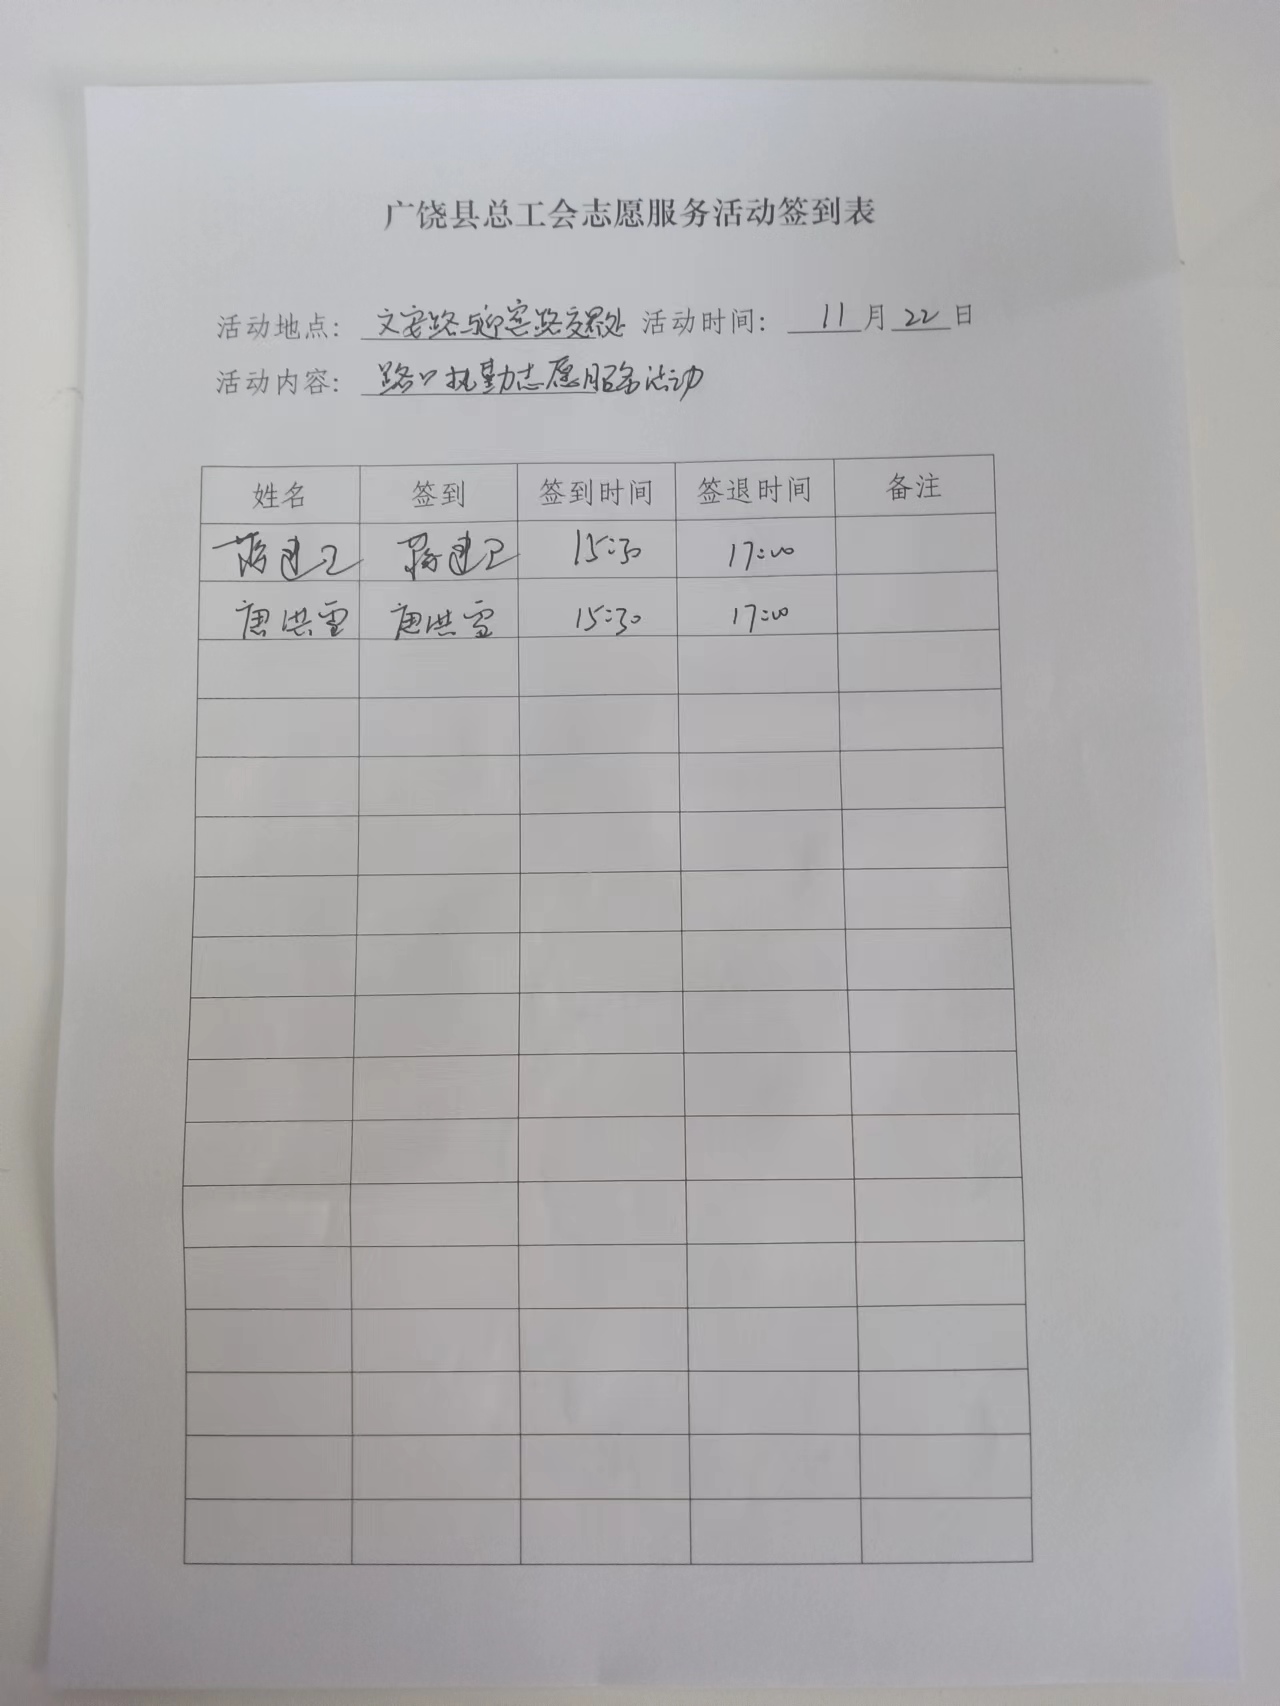 广饶县总工会志愿服务活动签到表
活动地点: 文安路与迎宾路交界处 活动时间: 11月22日
活动内容: 路口执勤志愿服务活动
姓名 签到 签到时间 签退时间 备注
蒋建卫 蒋建卫 15:30 17:00
唐洪雪 唐洪雪 15:30 17:00